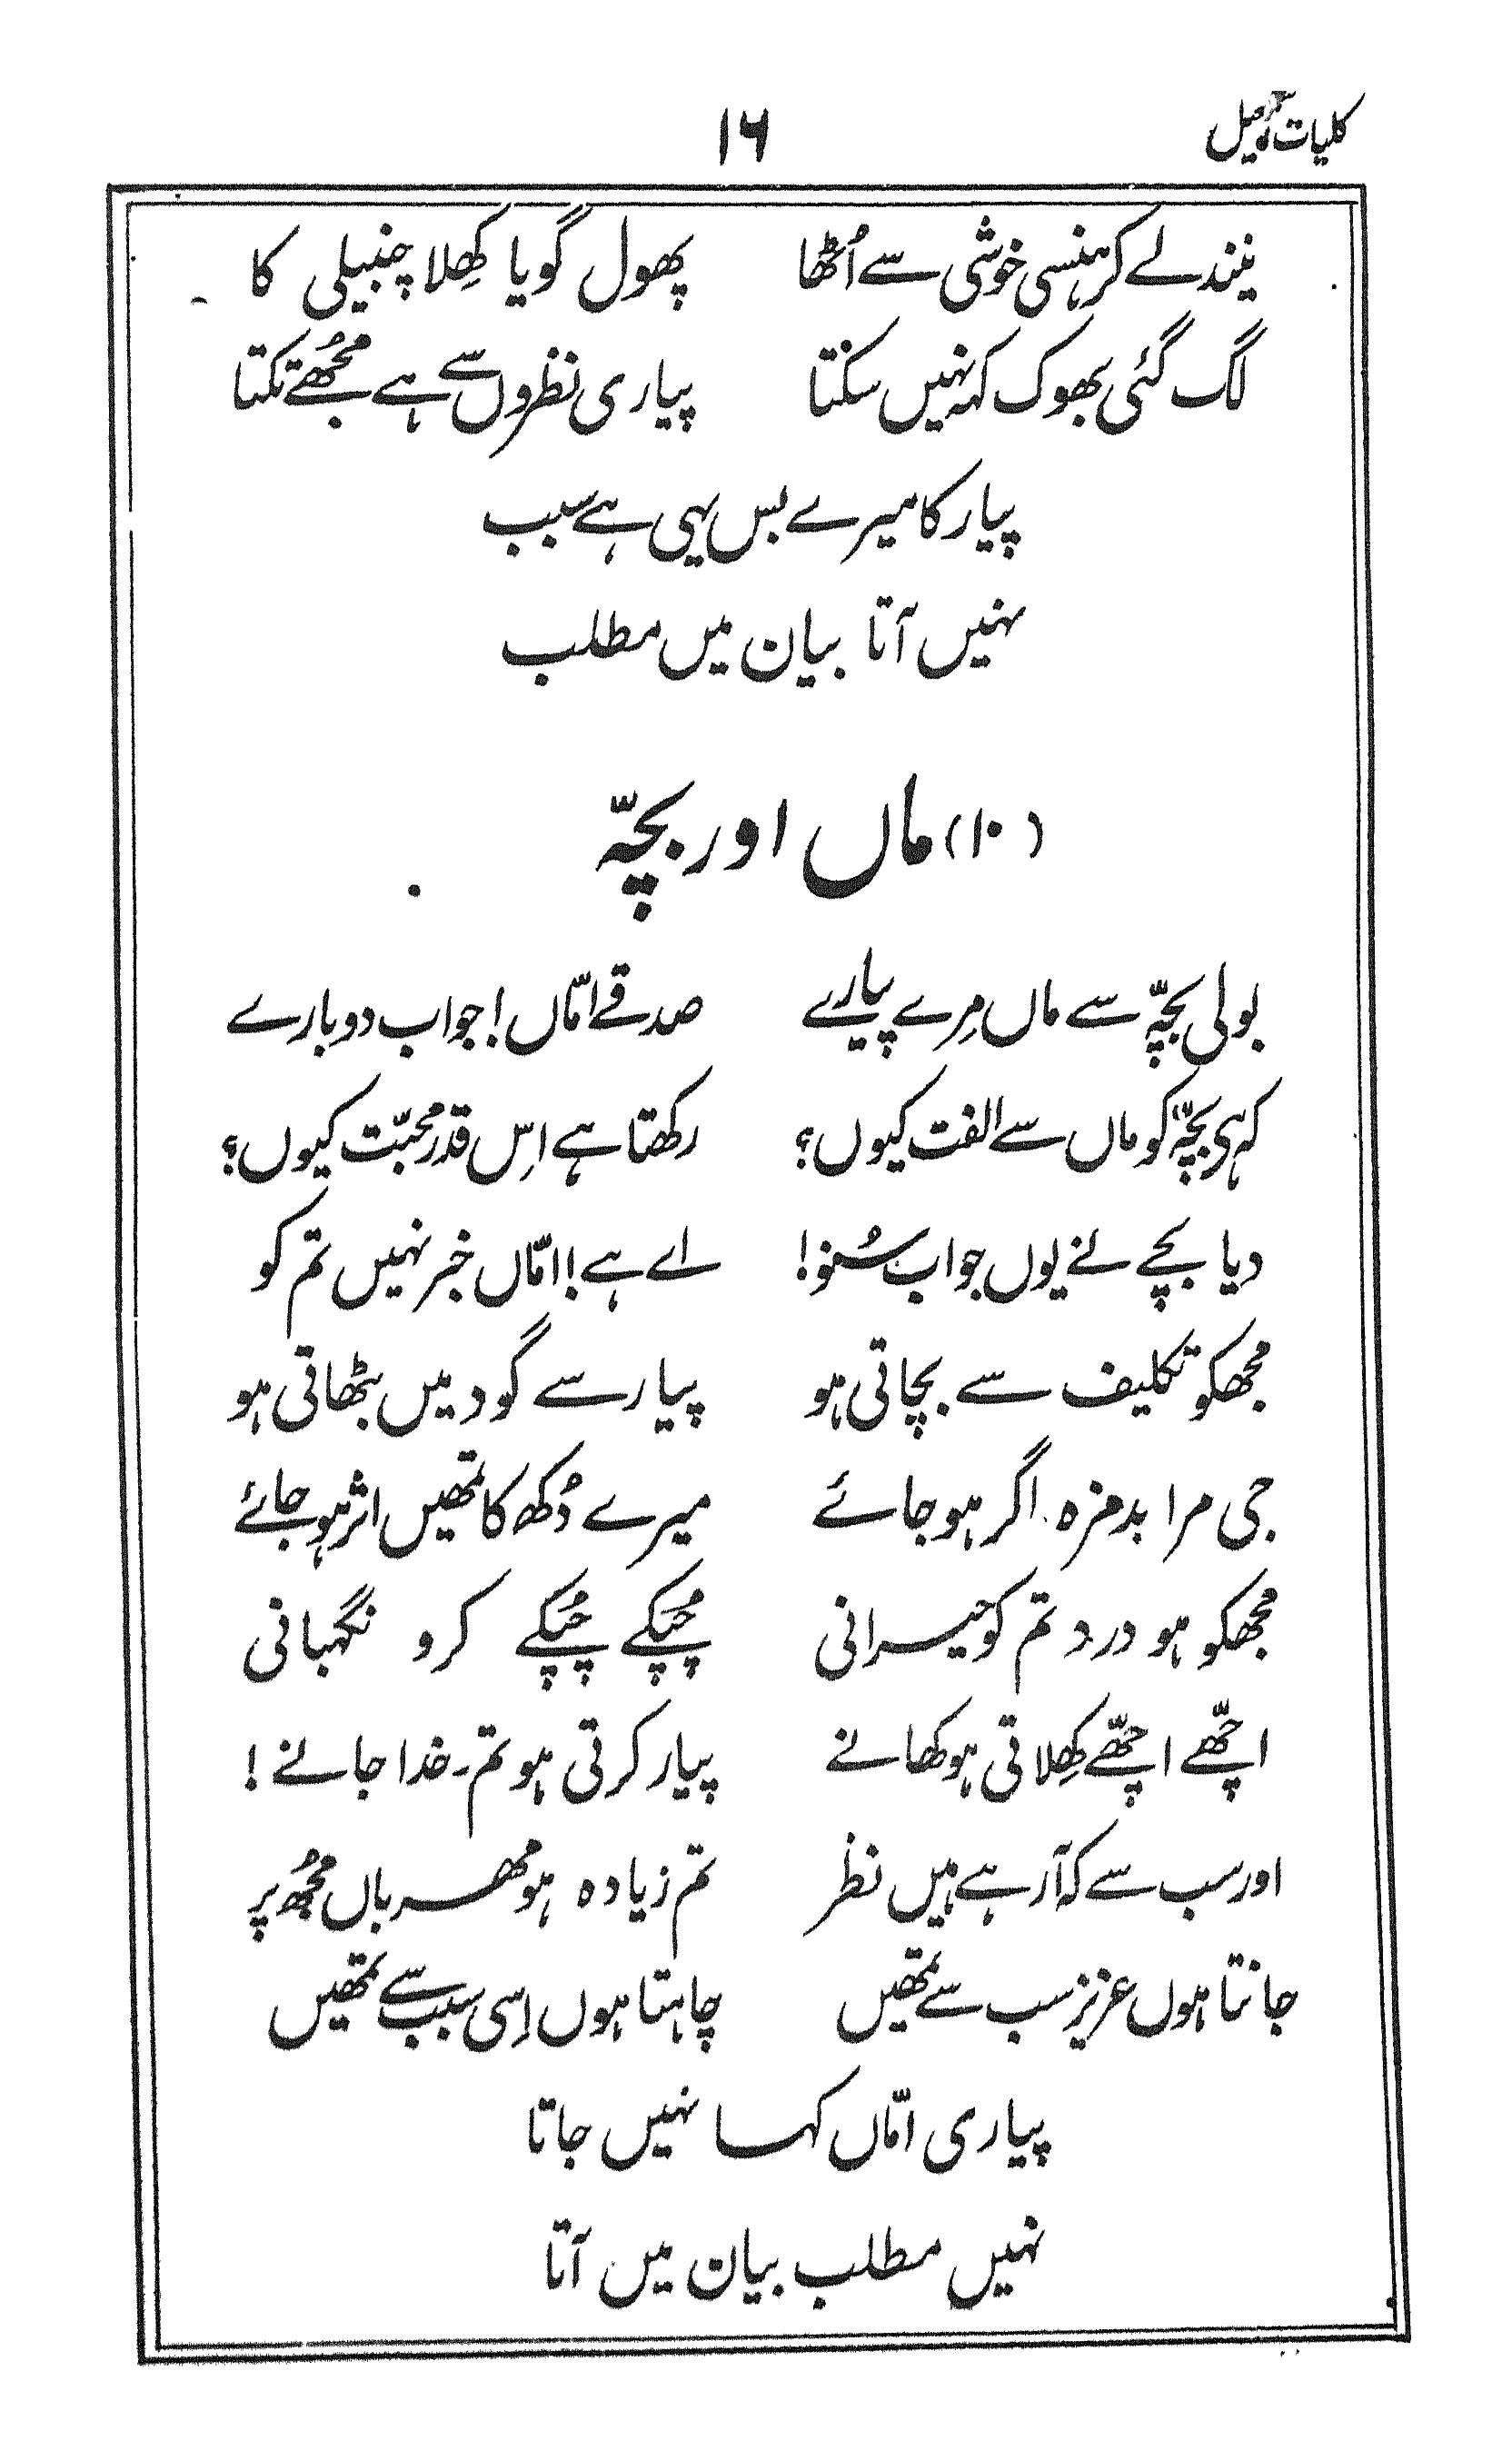 کلیات
۱۶
نیند لے کر ہنسی خوشی سے اُٹھا پھول گویا کھِلا چنبیلی کا
لگ گئی بھوک کہہ نہیں سکتا پیاری نظروں سے ہے مجھُے تکتا
پیار کا میرے بس یہی ہے سبب
نہیں آتا بیان میں مطلب
(۱۰) ماں اور بچّہ
بولی بچّہ سے ماں مِرے پیارے صدقے امّاں! جواب دو بارے
کہ ہی بچّہ کو ماں سے الفت کیوں؟ رکھتا ہے اِس قدر محبّت کیوں؟
دیا بچے نے یوں جواب سُنو! اے ہے! امّاں خبر نہیں تم کو
مجھکو تکلیف سے بچاتی ہو پیار سے گود میں بٹھاتی ہو
جی مرا بدمزہ اگر ہو جائے میرے دُکھ کا تمھیں اثر ہو جائے
مجھکو ہو درد تم کو حیرانی چُپکے چُپکے کرو نگہبانی
اچھّے اچھّے کھِلاتی ہو کھانے پیار کرتی ہو تم۔ خدا جانے!
اور سب سے کہ آرہے ہیں نظر تم زیادہ ہو مہرباں مجھُ پر
جانتا ہوں عزیز سب سے تمھیں چاہتا ہوں اِسی سبب سے تمھیں
پیاری امّاں کہا نہیں جاتا
نہیں مطلب بیان میں آتا